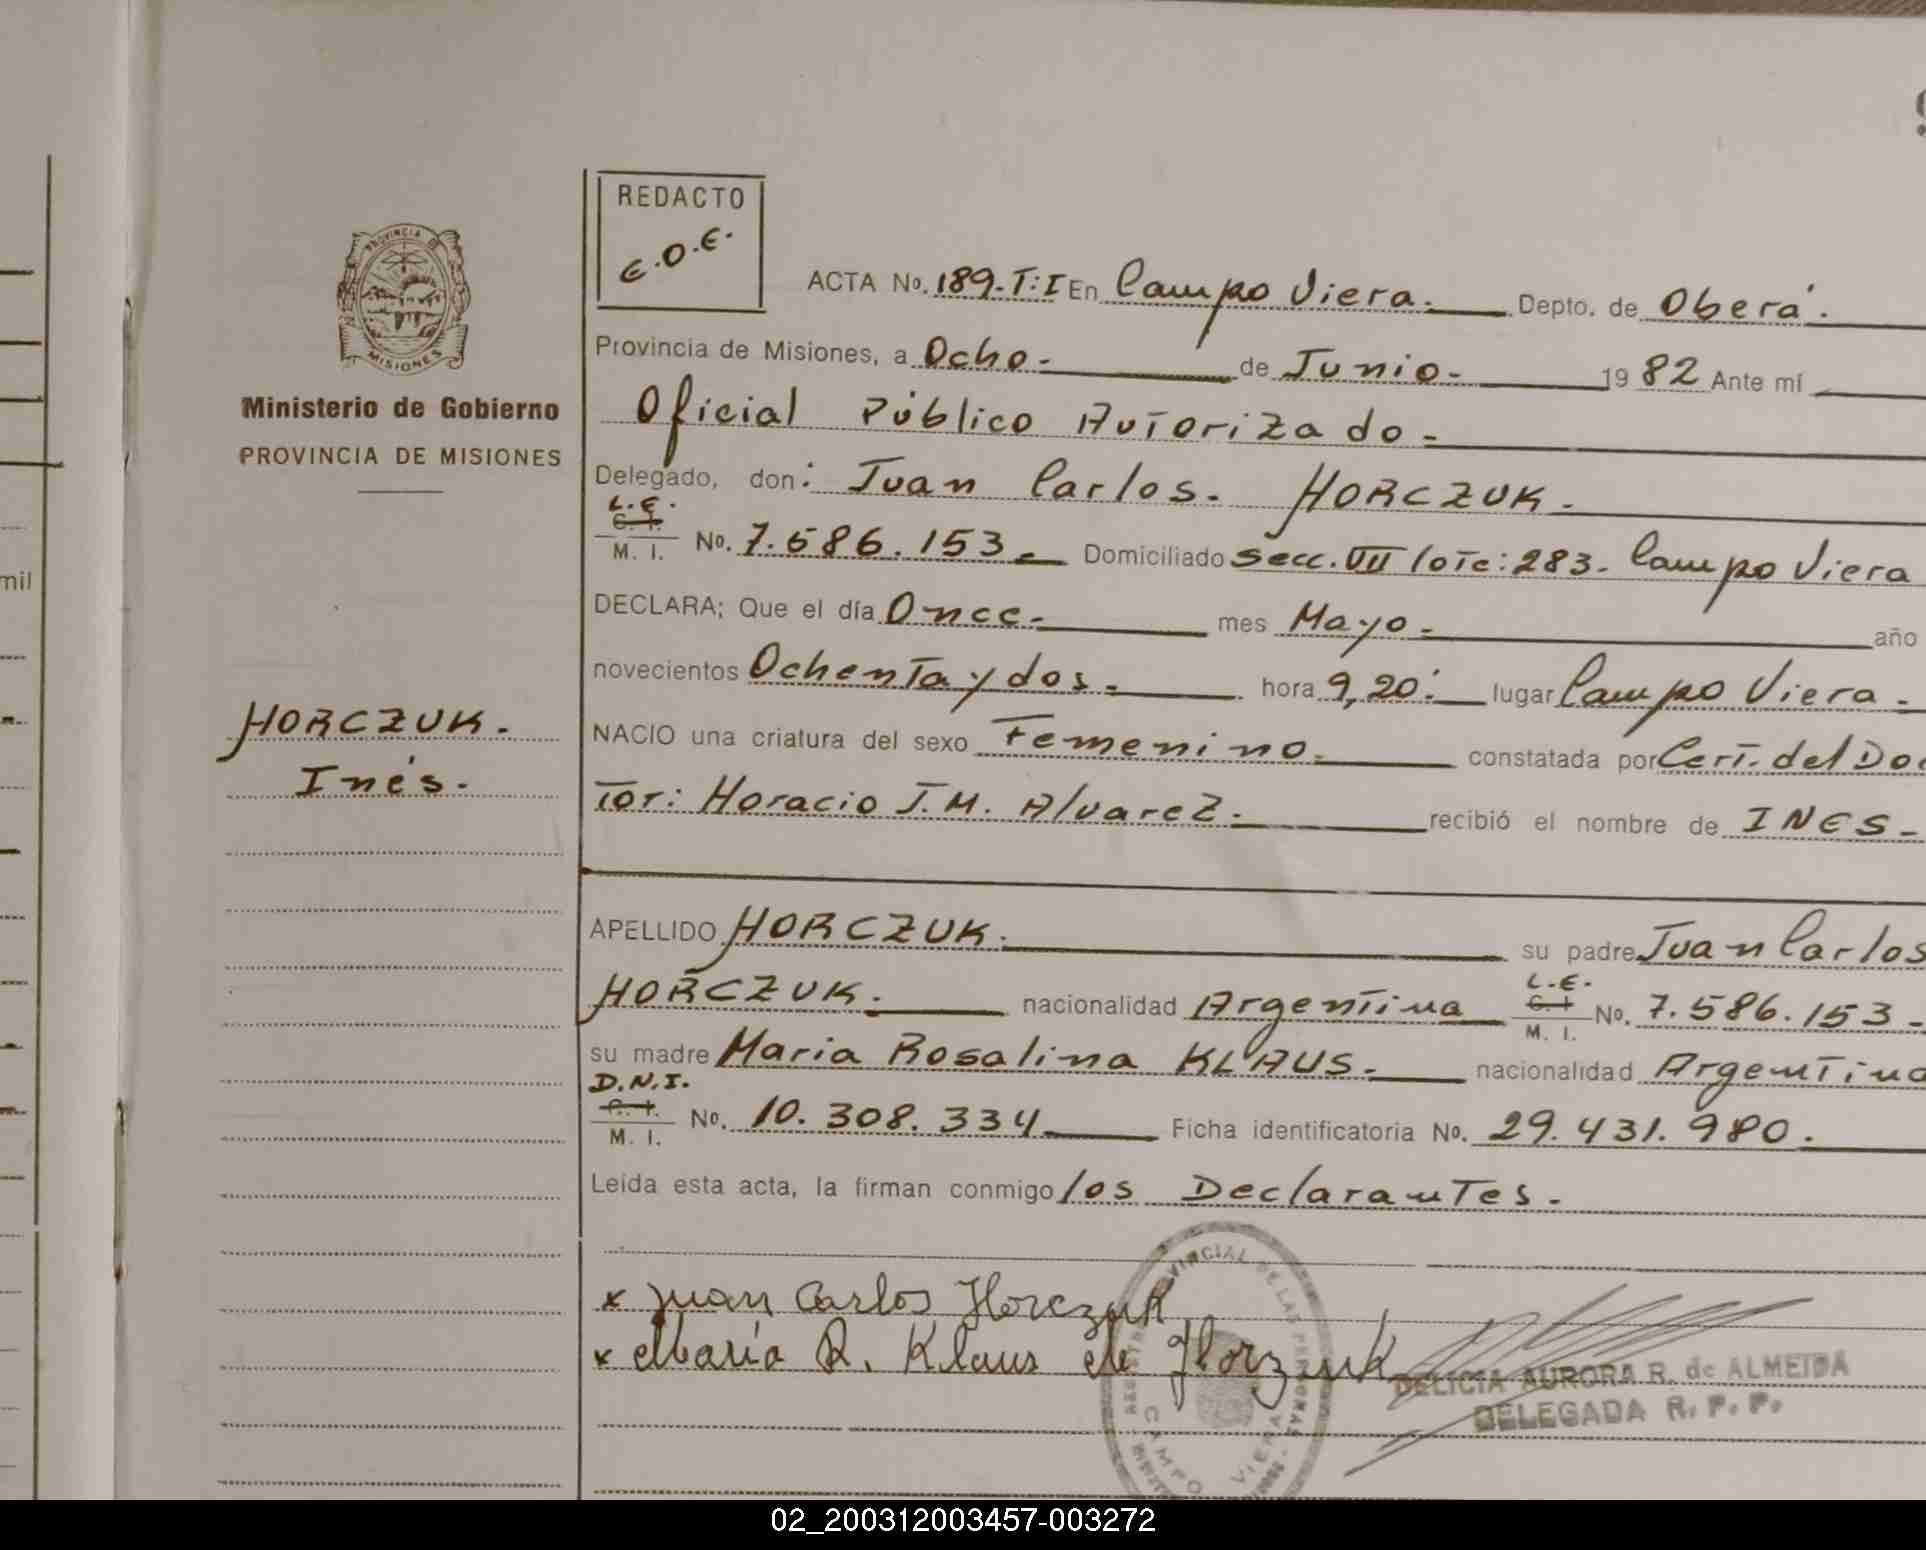 REDACTO
E.O.E.
PROVINCIA DE
MISIONES
Ministerio de Gobierno
PROVINCIA DE MISIONES
ACTA No. 189.T:I En Campo Viera. Depto. de Oberá.
Provincia de Misiones, a Ocho. de Junio. 1982 Ante mí
Oficial Público Autorizado.
Delegado, don: Juan Carlos. HORCZUK.
L.E.
C. I.
M. I. No. 7.586.153. Domiciliado Secc. VII lote: 283. Campo Viera
mil
DECLARA; Que el día Once. mes Mayo. año
novecientos Ochenta y dos. hora 9,20: lugar Campo Viera.
NACIO una criatura del sexo Femenino. constatada por Cert. del Doc
tor: Horacio J.M. Alvarez. recibió el nombre de INES.
HORCZUK.
Inés.
APELLIDO HORCZUK. su padre Juan Carlos
HORCZUK. nacionalidad Argentina L.E. C. I. M. I. No. 7.586.153.
su madre Maria Rosalina KLAUS. nacionalidad Argentina
D.N.I.
C. I.
M. I. No. 10.308.334 Ficha identificatoria No. 29.431.980.
Leida esta acta, la firman conmigo los Declarantes.
x Juan Carlos Horczuk
x Maria R. Klaus de Horczuk
VINCIAL DE LAS PERSONAS
CAMPO VIERA
DELICIA AURORA R. de ALMEIDA
DELEGADA R. P. P.
02_200312003457-003272